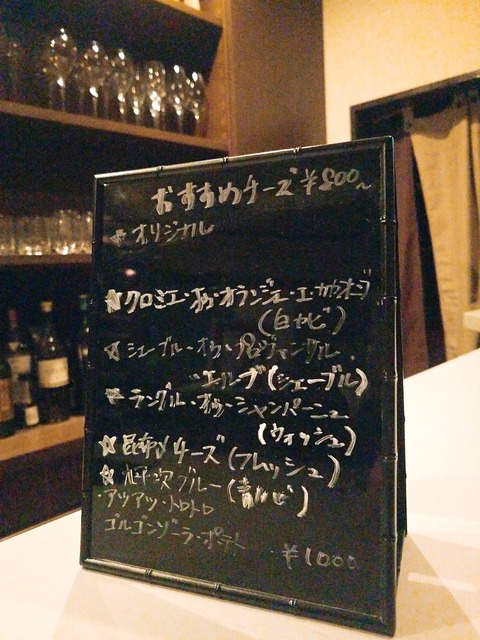 おすすめチーズ ¥800~
☆オリジナル
☆クロミエ・オゥ・オランジュ・エ・カカオニブ
(白カビ)
☆シェーブル・オゥ・プロヴァンサル・
エルブ(シェーブル)
☆ラングル・オゥ・シャンパーニュ
(ウォッシュ)
☆昆布〆チーズ(フレッシュ)
ブルー(青カビ)
・アツアツ・トロトロ
ゴルゴンゾーラ・ポテト
¥1000